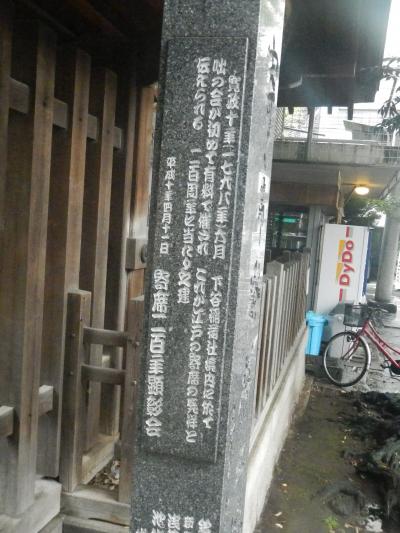 寛政十年一七九八年六月 下谷稲荷社境内に於て
咄の会が初めて有料で催され これが江戸の寄席の発祥と
伝えられる 二百周年に当たり之建
平成十年四月十一日 寄席二百年顕彰会
DyDo